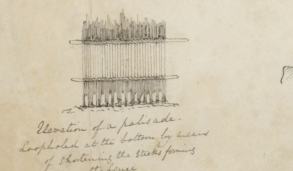 Elevation of a palisade.
Loopholed at the bottom by means
of shortening the sticks forming
the fence